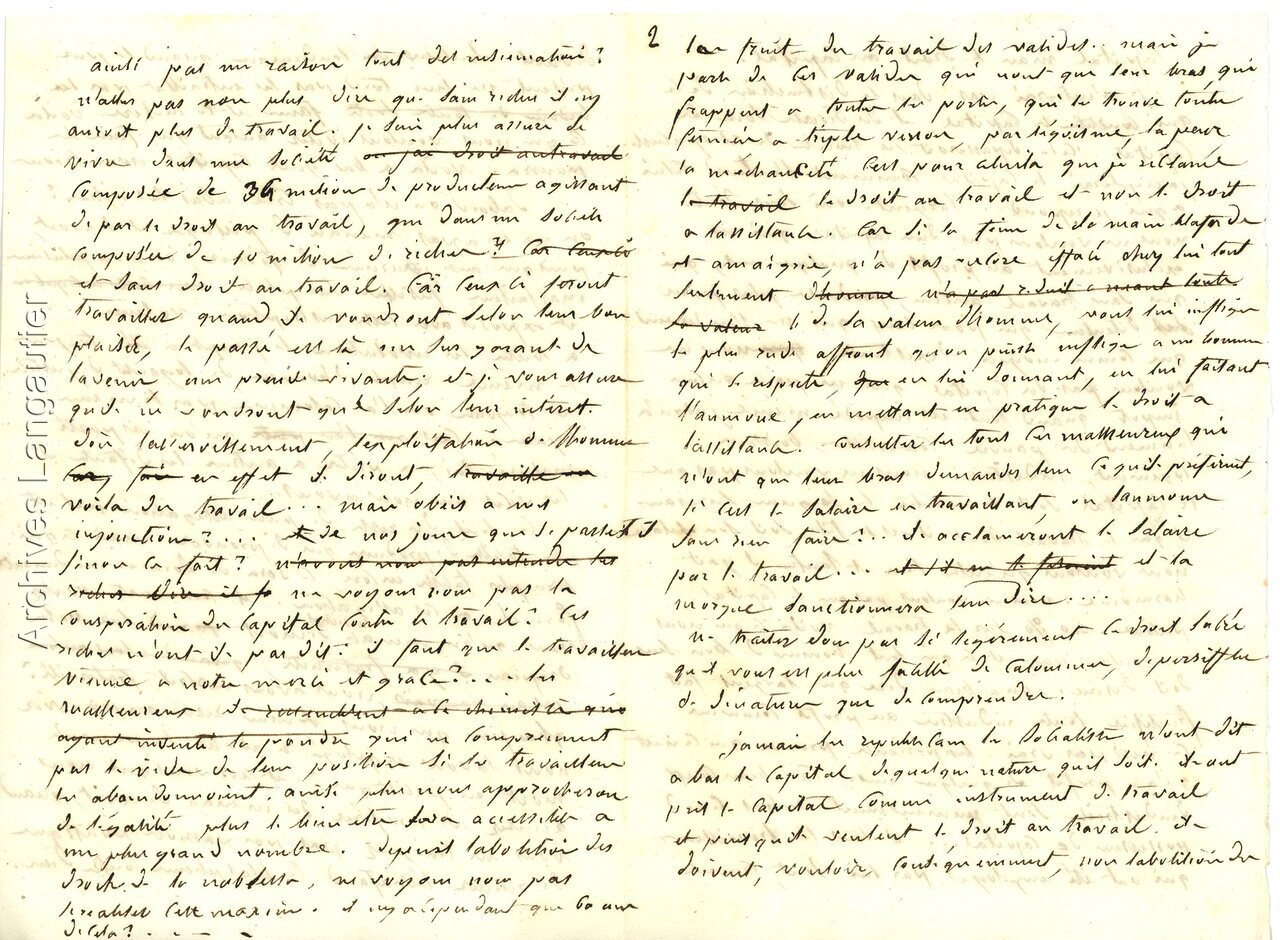 pas une raison tout des
n'allez pas non plus dire que sans riches il ny
auroit plus de travail. je suis plus assuré de
vivre dans une société ou j'ai droit au travail
composée de 36 million de producteur agissant
de par le droit au travail, que dans une société
composée de 10 million de riches? Car ceux ci
et sans droit au travail. Car ceux ci feront
travailler quand ils voudront selon leur bon
plaisir, le passé est là un sur garant de
lavenir, une preuve vivante; et je vous assure
quils ne voudront que selon leur intéret.
doù lasservissement, lexploitation de lhomme
en effet ils diront, travaille
voila du travail... mais obéis a nos
injonction?... et de nos jours que se passe t'il
sinon ce fait? n'avons nous pas entendu les
riches dire ne voyons nous pas la
conspiration du Capital contre le travail? Ces
riches n'ont ils pas dit: il faut que le travailleur
vienne a notre merci et grace?... les
malheureux ils ressemblent a le chimiste qui
ayant inventé la poudre qui ne comprennent
pas le vide de leur position si les travailleurs
les abandonnoient. ainsi plus nous approcherons
de légalité plus le bien etre sera accessible a
un plus grand nombre. depuis labolition des
droits de la noblesse, ne voyons nous pas
realiser cette maxime. il ny a cependant que 60 ans
de cela? . . .
2
le fruit du travail des valides. mais je
parle de ces valides qui nont que leur bras qui
frappent a toutes les portes, qui les trouve toutes
fermées a triple verrou, par légoïsme, la peur
la méchanceté Cest pour celuila que je réclame
le travail le droit au travail et non le droit
a lassistance. Car si la faim de sa main blafarde
et amaigrie, n'a pas encore éffacé chez lui tout
sentiment dhomme n'a pas réduit a néant toute
sa valeur de sa valeur dhomme, vous lui infligez
le plus rude affront quon puisse infliger a un homme
qui se respecte, en lui donnant, en lui faisant
l'aumone, en mettant en pratique le droit a
lassistance. Consultez les tous ces malheureux qui
n'ont que leur bras demandez leur ce quils préfèrent,
si cest le salaire en travaillant, ou laumone
sans rien faire?.. ils acclameront le salaire
par le travail... et la
morgue sanctionnera leur dire....
ne traitez donc pas si légèrement ce droit sacré
quil vous est plus facile de calomnier, de persiffler
de dénaturer que de comprendre.
jamais les republicain les Socialistes n'ont dit
a bas le Capital de quelque nature quil soit. ils ont
pris le Capital comme instrument de travail
et puisquils veulent le droit au travail. ils
doivent, vouloir, conséquemment, non labolition du
Archives Langautier